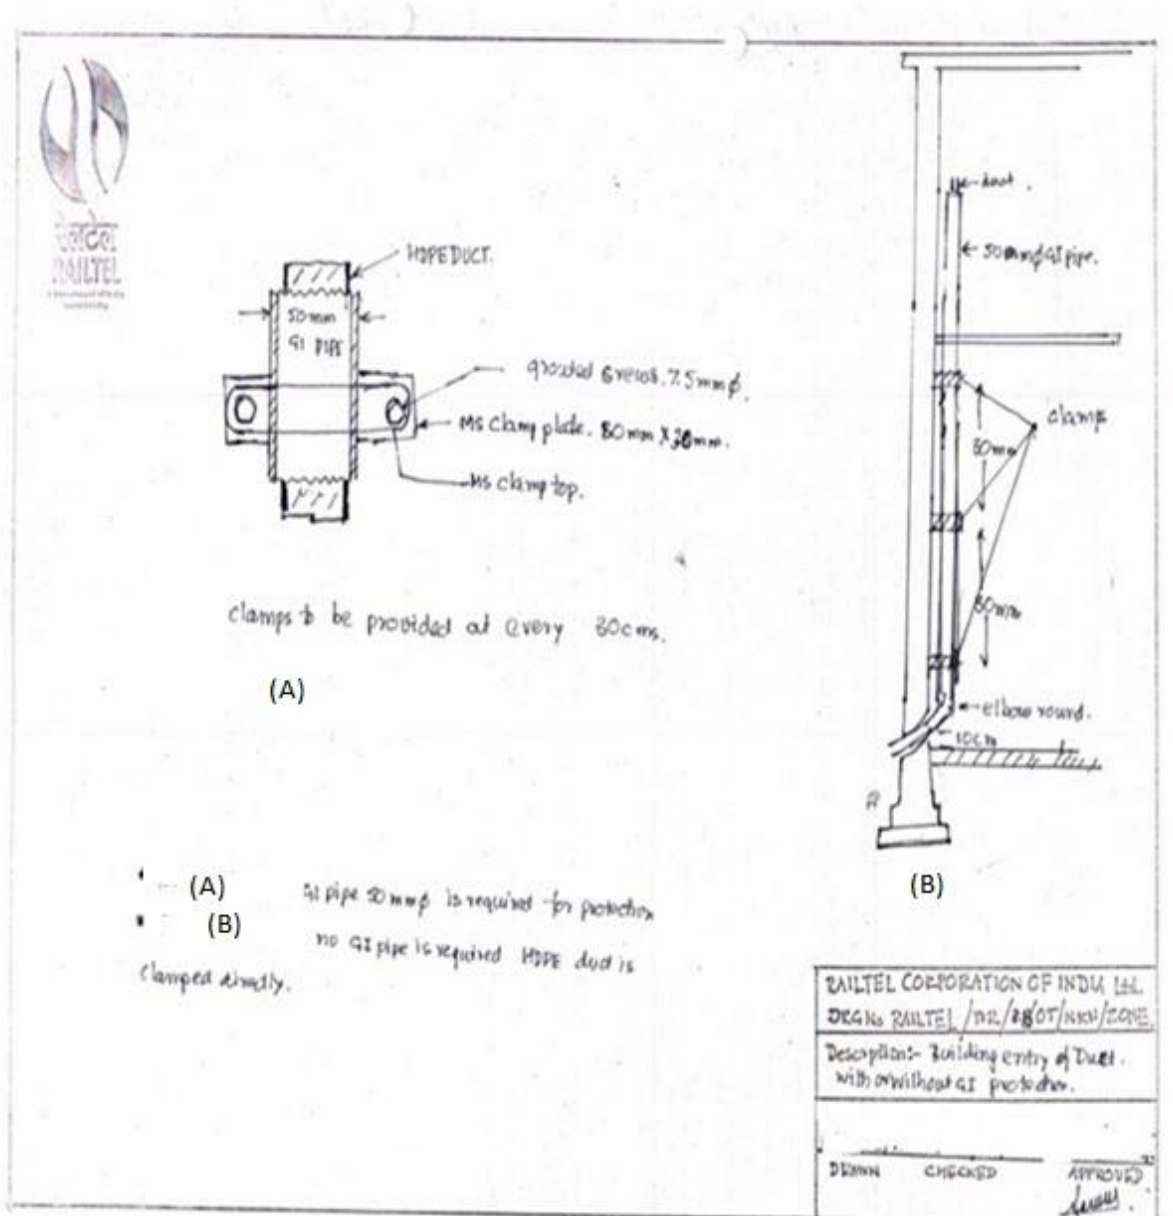 रेलटेल
RAILTEL
HDPE DUCT.
50mm
GI PIPE
grouted screws. 7.5mmφ.
MS Clamp plate. 80mm X 30mm.
MS clamp top.
clamps to be provided at every 30cms.
(A)
duct.
50mmφ GI pipe.
clamp
30mm
30mm
elbow round.
10cm
(B)
(A) GI pipe 50mmφ is required for protection
(B) no GI pipe is required HDPE duct is
Clamped directly.
RAILTEL CORPORATION OF INDIA Ltd.
DRG No RAILTEL / /NKN/ZONE
Description:- Building entry of Duct.
with or without GI protection.
DRAWN CHECKED APPROVED